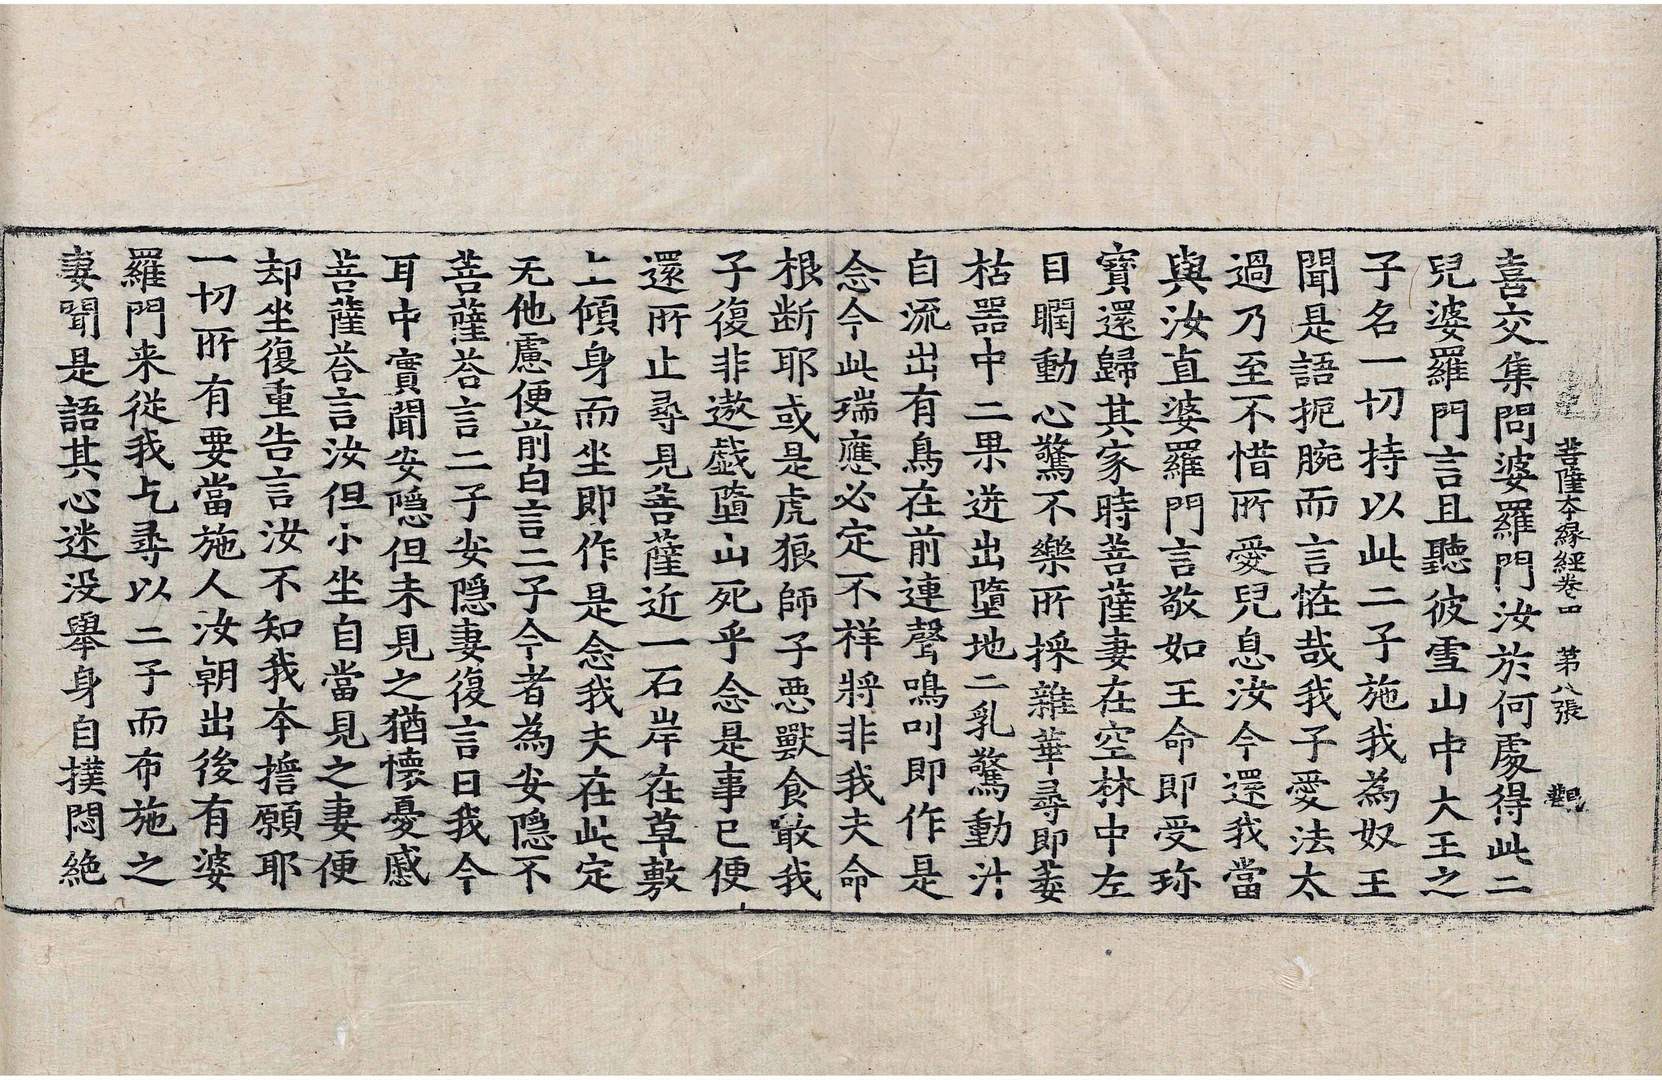 菩薩本緣經卷四　第八張　觀
喜交集問婆羅門汝於何處得此二
兒婆羅門言且聽彼雪山中大王之
子名一切持以此二子施我為奴王
聞是語扼腕而言恠哉我子愛法太
過乃至不惜所愛兒息汝今還我當
與汝直婆羅門言敬如王命即受珎
寶還歸其家時菩薩妻在空林中左
目瞤動心驚不樂所採雜華尋即萎
枯器中二果迸出墮地二乳驚動汁
自流出有鳥在前連聲鳴叫即作是
念今此瑞應必定不祥將非我夫命
根断耶或是虎狼師子惡獸食噉我
子復非遨戲墮山死乎念是事已便
還所止尋見菩薩近一石岸在草敷
上傾身而坐即作是念我夫在此定
无他慮便前白言二子今者為安隱不
菩薩荅言二子安隱妻復言曰我今
耳中實聞安隱但未見之猶懷憂慼
菩薩荅言汝但小坐自當見之妻便
却坐復重告言汝不知我本誓願耶
一切所有要當施人汝朝出後有婆
羅門来從我乞尋以二子而布施之
妻聞是語其心迷没舉身自撲悶絶